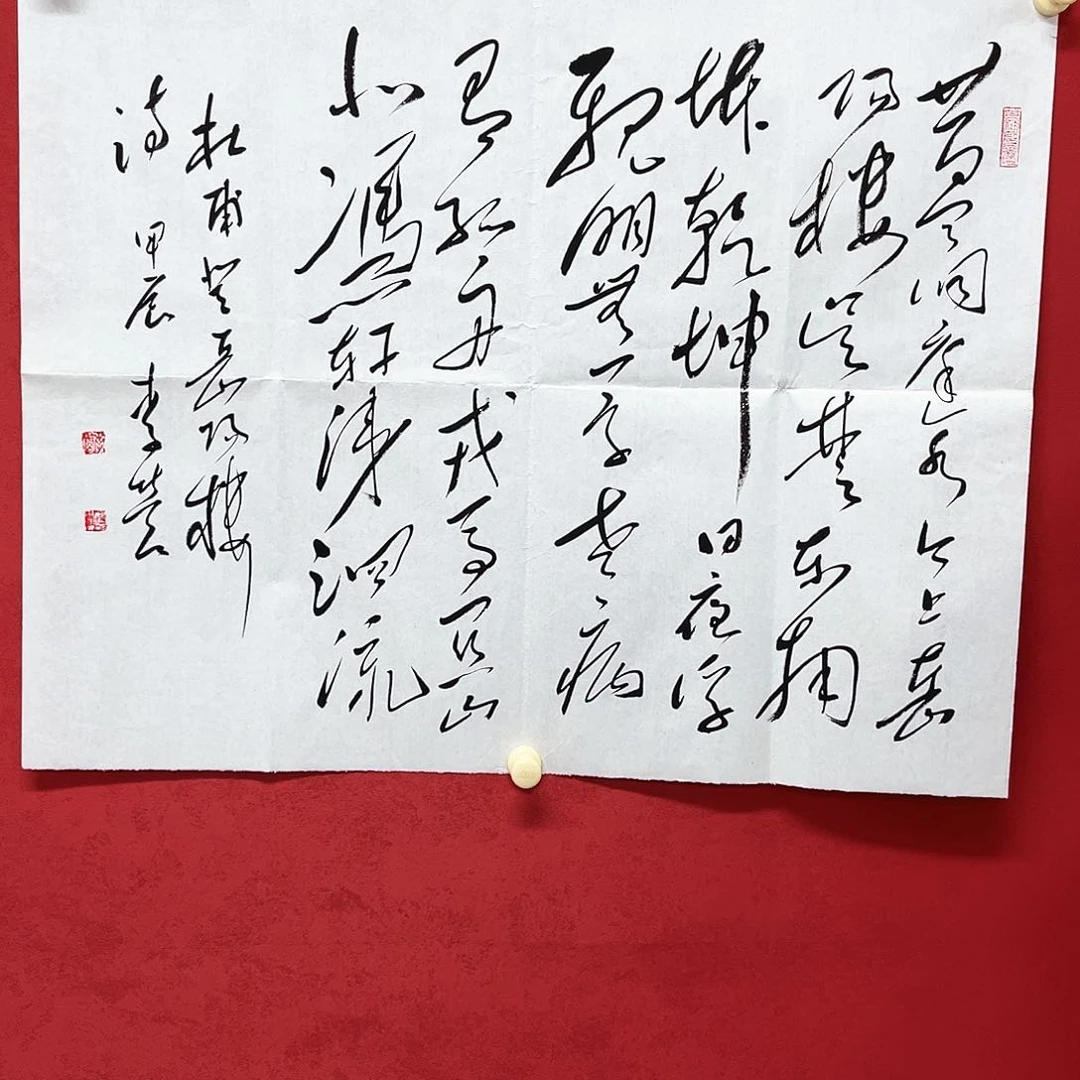 昔聞洞庭水今上岳
陽樓吳楚東南
坼乾坤日夜浮
親朋無一字老病
有孤舟戎馬關山
北憑軒涕泗流
杜甫登岳陽樓
詩 甲辰 李